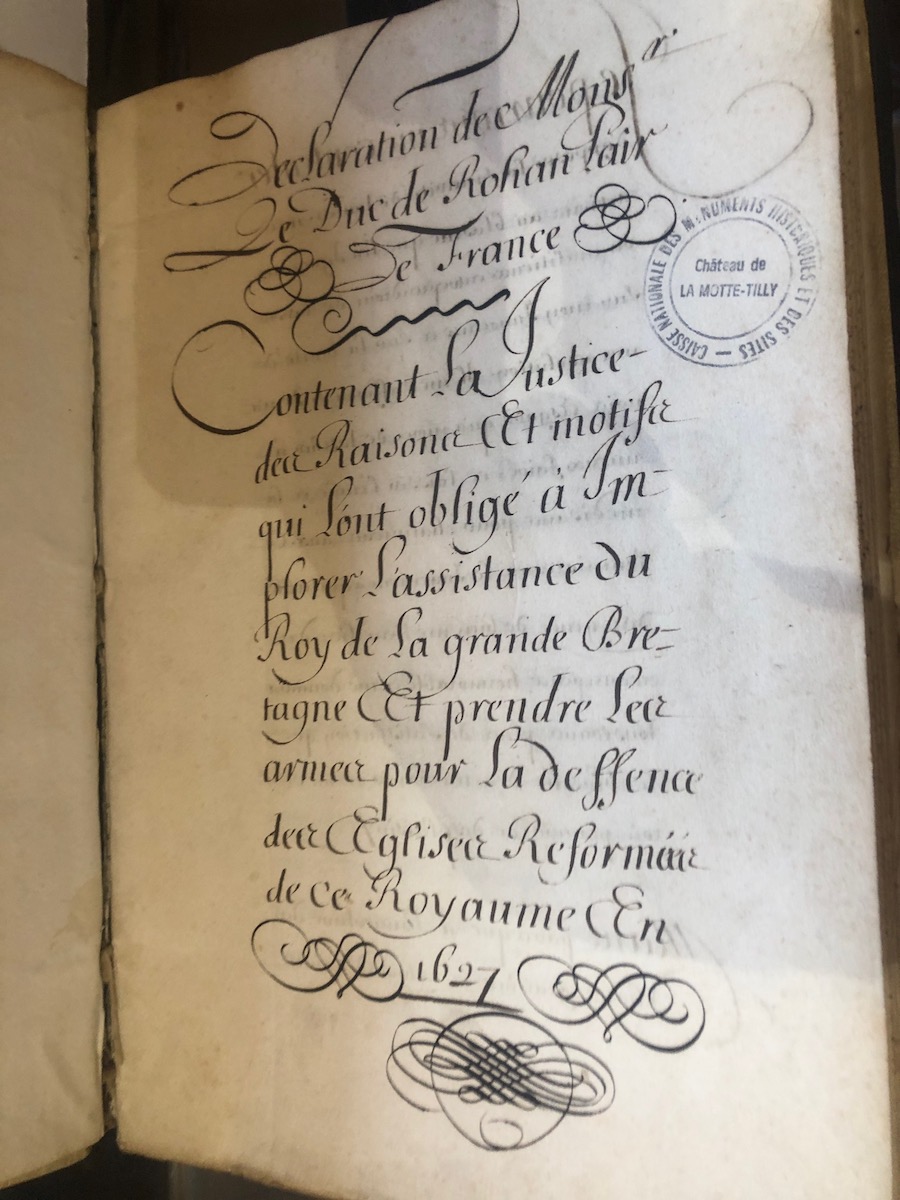 Declaration de Monsr.
Le Duc de Rohan Pair
De France
Contenant La Justice
des Raisons Et motifs
qui L'ont obligé à Im-
plorer L'assistance du
Roy de La grande Bre-
tagne Et prendre Les
armes pour La deffence
des Eglises Reformées
de ce Royaume En
1627
CAISSE NATIONALE DES MONUMENTS HISTORIQUES ET DES SITES —
Château de
LA MOTTE-TILLY